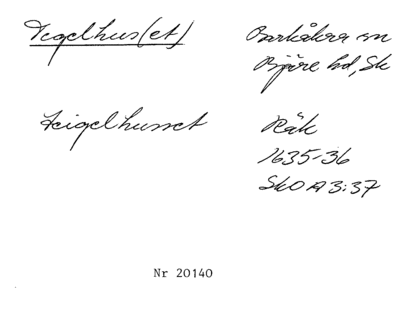 Tegelhus(et)
Barkåkra sn
Bjäre hd, Sk
Teigelhusset
Räk
1635-36
SkO A 3:37
Nr 20140